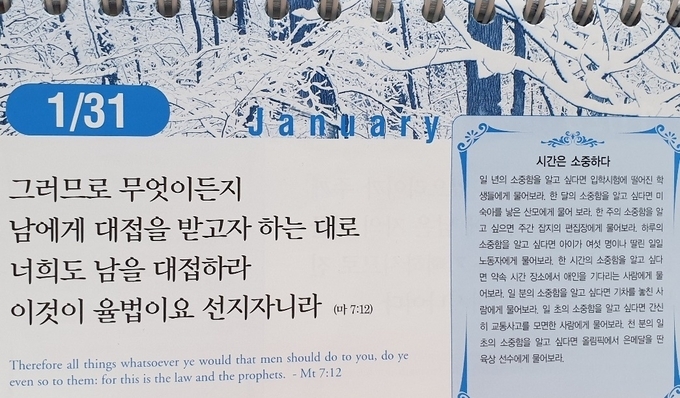 1/31
January
그러므로 무엇이든지
남에게 대접을 받고자 하는 대로
너희도 남을 대접하라
이것이 율법이요 선지자니라 (마 7:12)
Therefore all things whatsoever ye would that men should do to you, do ye
even so to them: for this is the law and the prophets. - Mt 7:12
시간은 소중하다
일 년의 소중함을 알고 싶다면 입학시험에 떨어진 학
생들에게 물어보라. 한 달의 소중함을 알고 싶다면 미
숙아를 낳은 산모에게 물어 보라. 한 주의 소중함을 알
고 싶으면 주간 잡지의 편집장에게 물어보라. 하루의
소중함을 알고 싶다면 아이가 여섯 명이나 딸린 일일
노동자에게 물어보라. 한 시간의 소중함을 알고 싶다
면 약속 시간 장소에서 애인을 기다리는 사람에게 물
어보라. 일 분의 소중함을 알고 싶다면 기차를 놓친 사
람에게 물어보라. 일 초의 소중함을 알고 싶다면 간신
히 교통사고를 모면한 사람에게 물어보라. 천 분의 일
초의 소중함을 알고 싶다면 올림픽에서 은메달을 딴
육상 선수에게 물어보라.